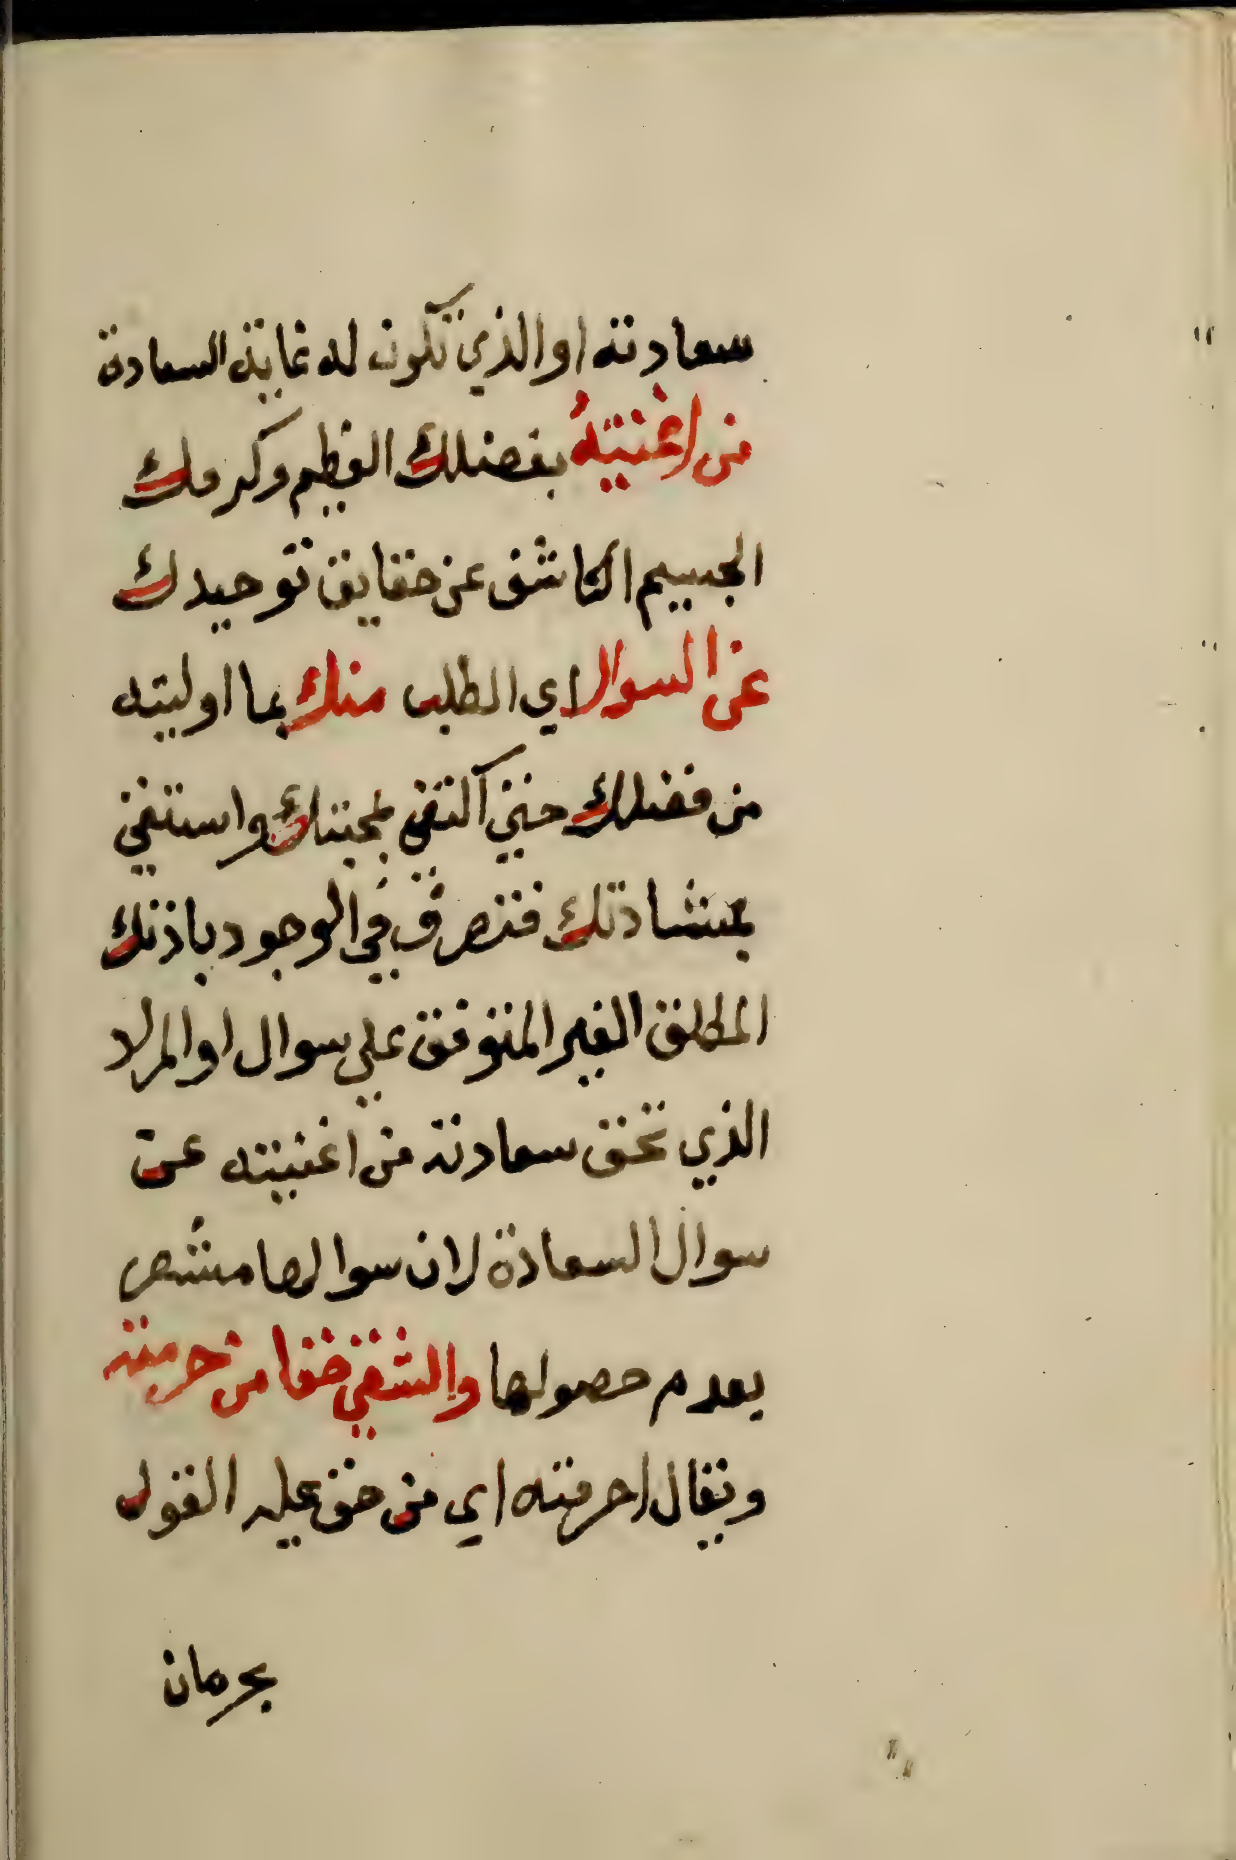 سعادته او الذي تكون له غاية السعادة
من اغنيتهُ بفضلك العظيم وكرمك
الجسيم الكاشف عن حقايق توحيدك
عن السوال اي الطلب منك بما اوليته
من فضلك حتي اكتفي بمحبتك واستغني
بمشادتك فتصرف في الوجود باذنك
المطلق الغير المتوقف علي سوال او المراد
الذي تحقق سعادته من اغنيته عن
سوال السعادة لان سوالها مشعر
بعدم حصولها والشقي حقا من حرمته
ويقال احرمته اي من حق عليه القول
بحرمان